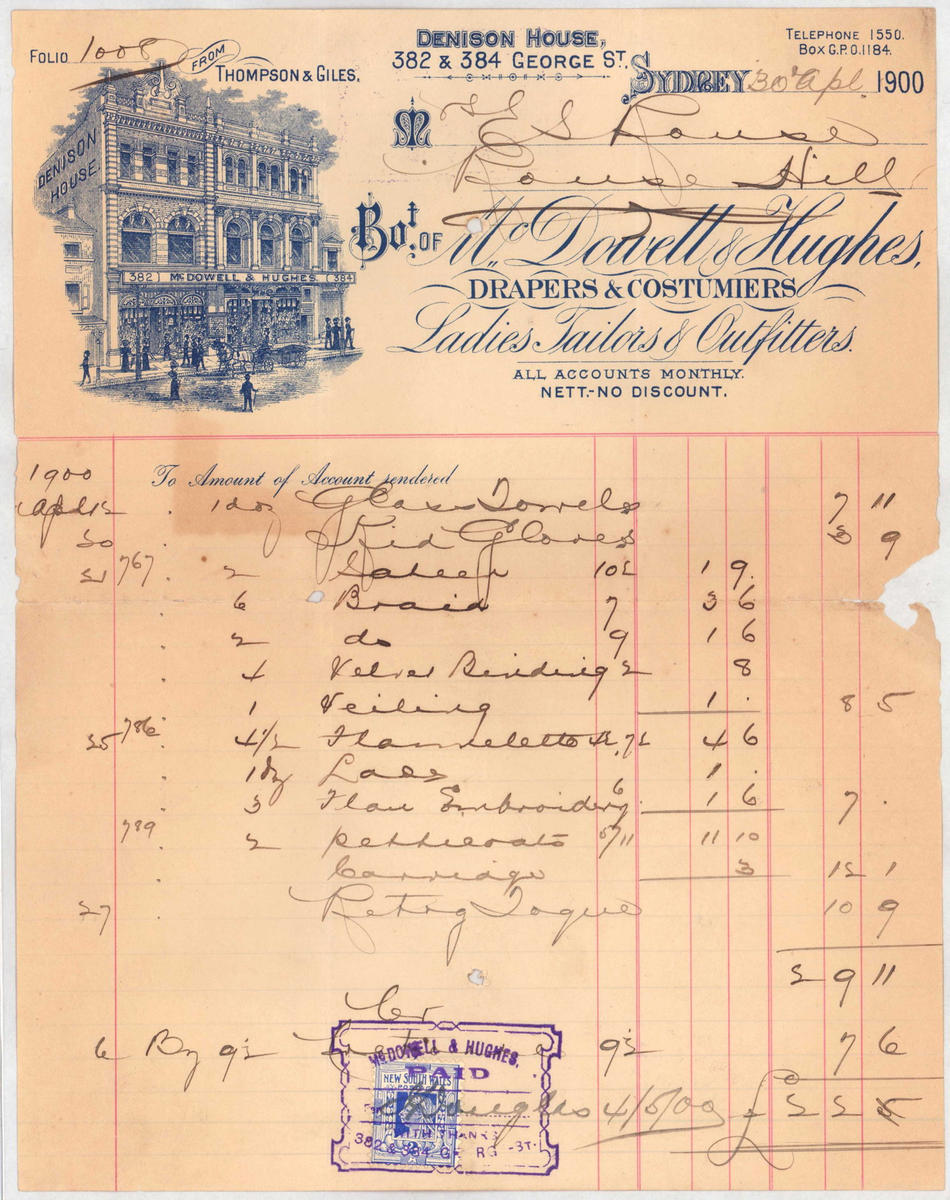 FOLIO 1008
FROM THOMPSON & GILES.
DENISON HOUSE,
382 & 384 GEORGE ST.
TELEPHONE 1550.
BOX G.P.O. 1184.
SYDNEY 30 Apl 1900
DENISON HOUSE.
M E S Rouse
Rouse Hill
Bot. OF McDowell & Hughes,
382 McDOWELL & HUGHES 384
DRAPERS & COSTUMIERS
Ladies Tailors & Outfitters.
ALL ACCOUNTS MONTHLY.
NETT.-NO DISCOUNT.
1900 To Amount of Account rendered
Apl 12 1 doz Glass Towels 7 11
20 Kid Gloves 3 9
21 767 2 10½ 1 9
6 Braid 7 3 6
2 do 9 1 6
4 Velvet Binding 2 8
1 Veiling 1 . 8 5
25 786 4½ Flannelette 4 6
1 dz Lace 1 .
3 Flan Embroidery 6 1 6 7 .
789 2 petticoats 5/11 11 10
Carriage 3 12 1
27 Toque 10 9
2 9 11
Cr
6 By 9½ 9½ 7 6
McDOWELL & HUGHES.
PAID
NEW SOUTH WALES
4/5/00 £ 2 2 5
WITH THANKS
382 & 384 GEORGE ST.